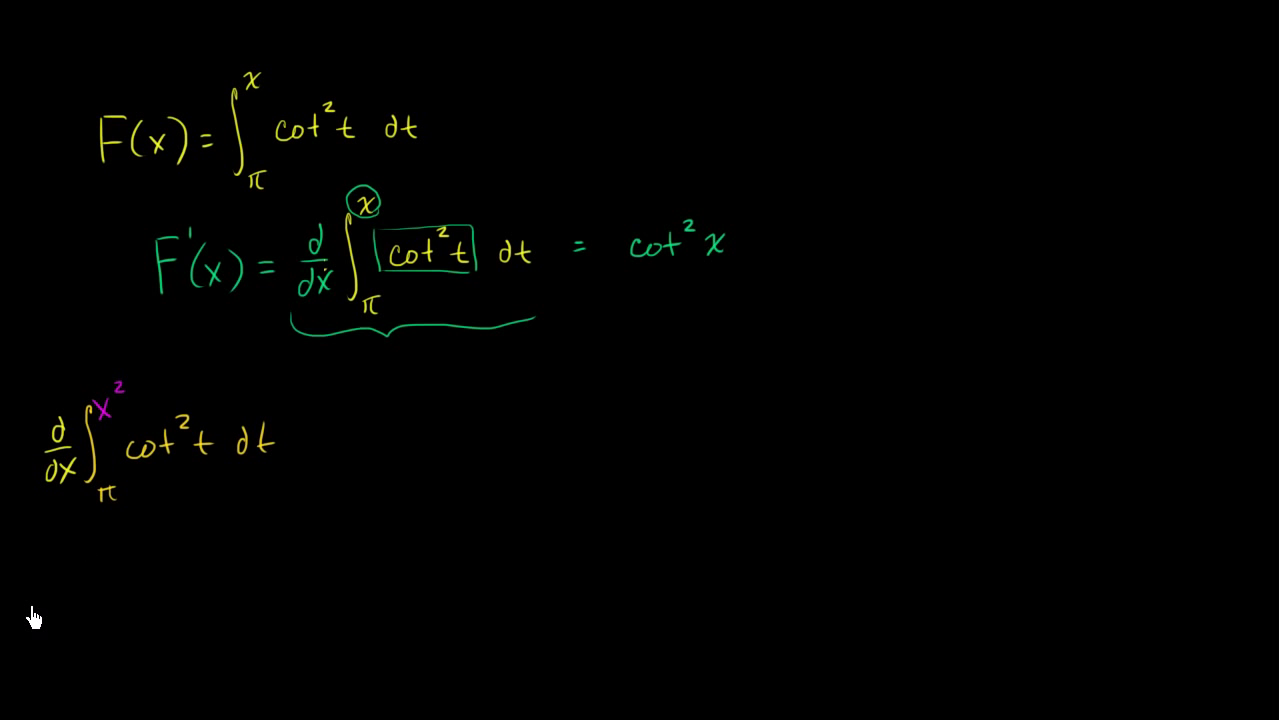 F(x) = ∫_π^x cot² t dt
F'(x) = d/dx ∫_π^x cot² t dt = cot² x
d/dx ∫_π^x² cot² t dt